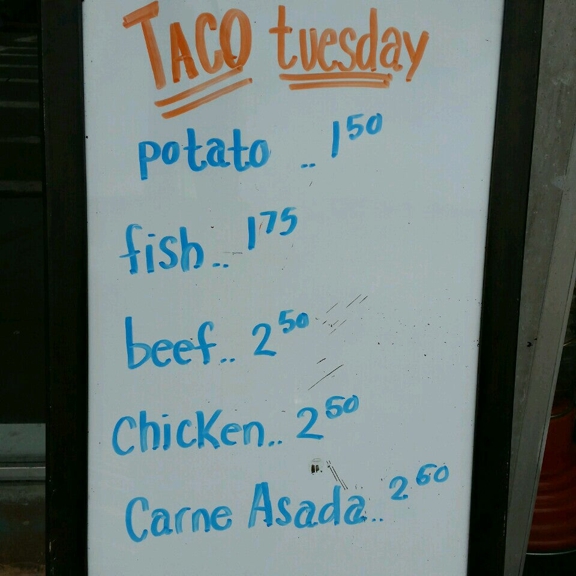 TACO tuesday
potato .. 1 50
fish.. 1 75
beef.. 2 50
Chicken.. 2 50
Carne Asada.. 2 60